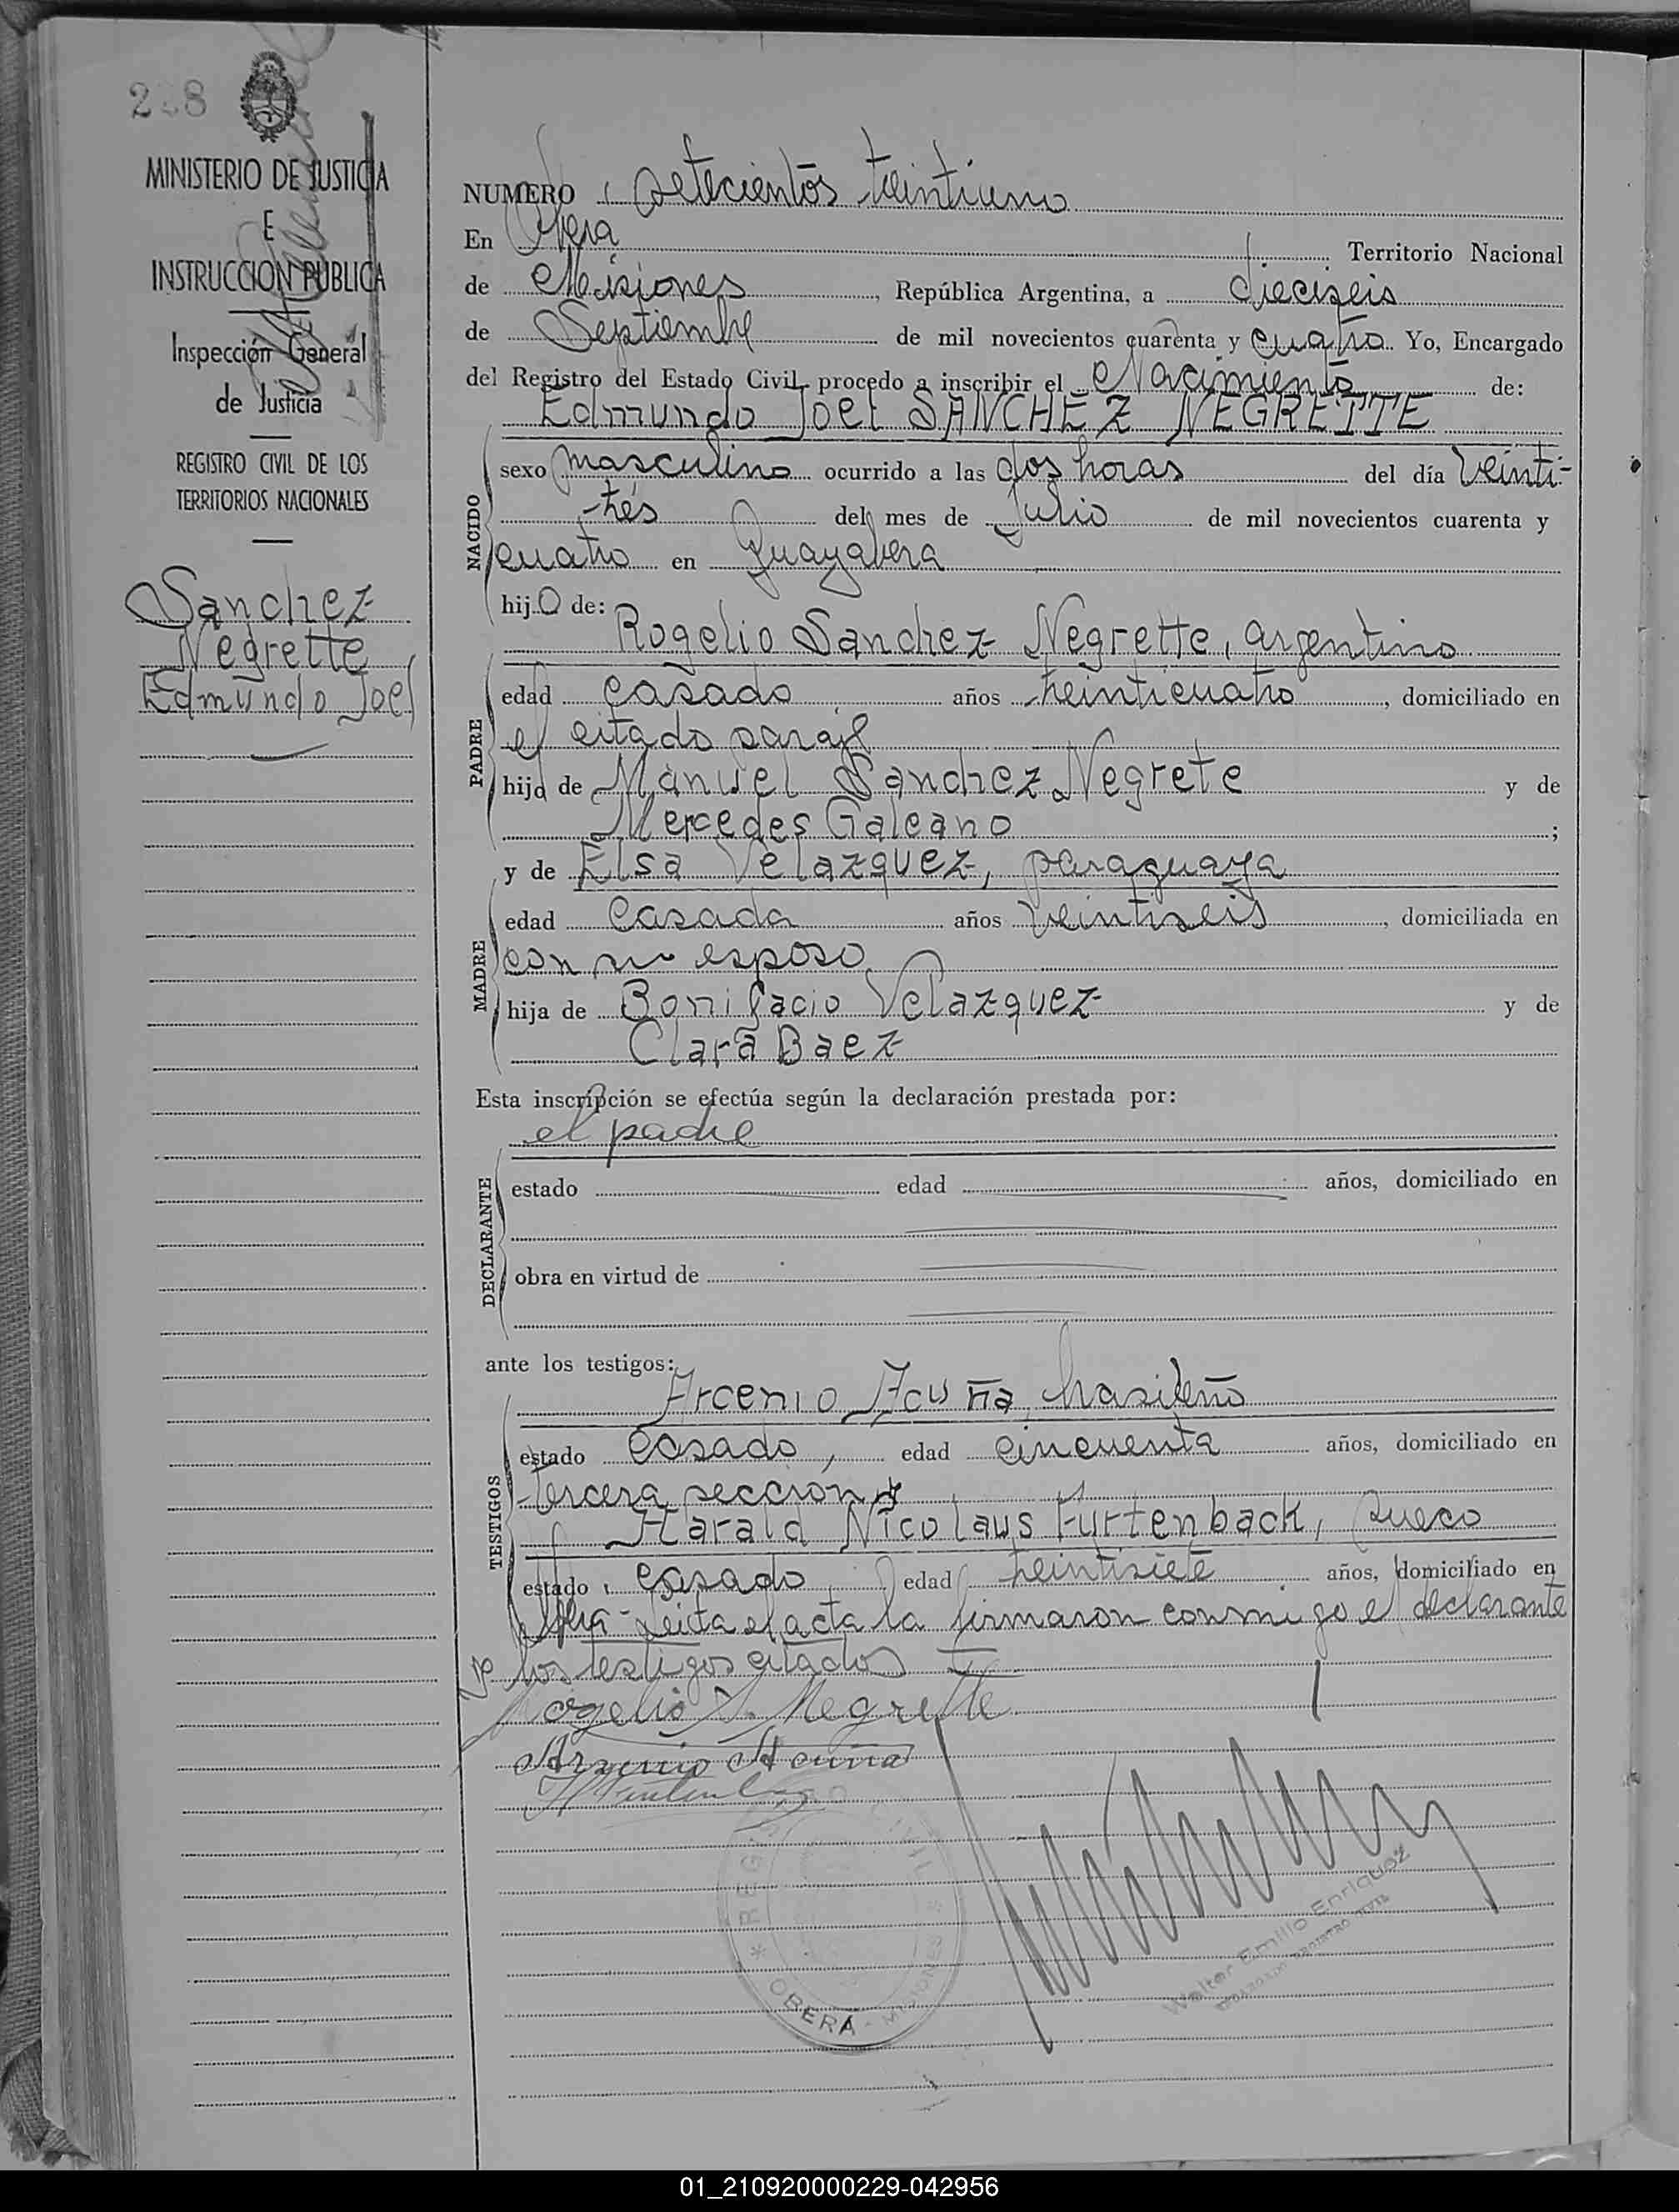 MINISTERIO DE JUSTICIA
E
INSTRUCCION PUBLICA
Inspección General
de Justicia
REGISTRO CIVIL DE LOS
TERRITORIOS NACIONALES
Sanchez
Negrette
Edmundo Joel
NUMERO setecientos
En Obera Territorio Nacional
de Misiones, República Argentina, a dieciseis
de Septiembre de mil novecientos cuarenta y cuatro. Yo, Encargado
del Registro del Estado Civil, procedo a inscribir el Nacimiento de:
Edmundo Joel SANCHEZ NEGRETTE
NACIDO
sexo masculino ocurrido a las dos horas del día veinti-
trés del mes de Julio de mil novecientos cuarenta y
cuatro en Guayabera
hijo de:
PADRE
Rogelio Sanchez Negrette, argentino
edad casado años, domiciliado en
el citado paraje
hijo de Manuel Sanchez Negrete y de
Mercedes Galeano;
y de Elsa Velazquez, paraguaya
MADRE
edad casada años veintiseis, domiciliada en
con su esposo
hija de Bonifacio Velazquez y de
Clara Baez
Esta inscripción se efectúa según la declaración prestada por:
el padre
DECLARANTE
estado edad años, domiciliado en
obra en virtud de
ante los testigos:
TESTIGOS
Arcenio Acuña, brasileño
estado casado, edad cincuenta años, domiciliado en
tercera seccion y
Harald Nicolaus Furtenback, sueco
estado casado, edad años, domiciliado en
Obera - Leida el acta la firmaron conmigo el declarante
y los testigos citados
Rogelio S. Negrette
Arzenio Acuña
REGISTRO CIVIL
* OBERÁ - MISIONES *
Walter Emilio Enriquez
ENCARGADO REGISTRO CIVIL
01_210920000229-042956